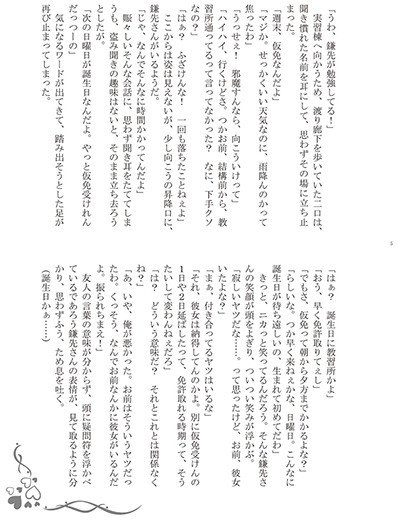 「うわ、鎌先が勉強してる！」
　実習棟へ向かうため、渡り廊下を歩いていた二口は、
聞き慣れた名前を耳にして、思わずその場に立ち止
まった。
「週末、仮免なんだよ」
「マジか、せっかくいい天気なのに、雨降んのかって
焦ったわ」
「うっせぇ！　邪魔すんなら、向こういけって」
「ハイハイ、行くけどさ。つかお前、結構前から、教
習所通ってるって言ってなかった？　なに、下手クソ
なの？」
「はぁっ、ふざけんな！　一回も落ちたことねぇよ」
　ここからは姿は見えないが、少し向こうの昇降口に、
鎌先さんがいるようだ。
「じゃ、なんでそんなに時間かかってんだよ」
　賑々しいそんな会話に、思わず聞き耳をたててしま
うも、盗み聞きの趣味はないと、そのまま立ち去ろう
としたが。
「次の日曜日が誕生日なんだよ。やっと仮免受けれん
だっつーの」
　気になるワードが出てきて、踏み出そうとした足が
再び止まってしまった。
「はぁ？　誕生日に教習所かよ」
「おう、早く免許取りてぇし」
「でもさ、仮免って朝から夕方までかかるよな？」
「らしいな。つか早く来ねぇかな、日曜日。こんなに
誕生日が待ち遠しいの、生まれて初めてだわ」
　きっと、ニカっと笑ってるんだろう。そんな鎌先さ
んの笑顔が頭をよぎり、ついつい笑みが浮かぶ。
「寂しいヤツだな……。って思ったけど、お前、彼女
いたよな？」
「まぁ、付き合ってるヤツはいるな」
「それ、彼女は納得してんのかよ。別に仮免受けんの
1日や2日延ばしたって、免許取れる時期って、そう
たいして変わんねぇだろ」
「は？　どういう意味だ？　それとこれとは関係なく
ね？」
「あ、いや、俺が悪かった。お前はそういうヤツだっ
たわ。くっそう、なんでお前なんかに彼女がいるんだ
よ。振られちまえ！」
　友人の言葉の意味が分からず、頭に疑問符を浮かべ
ているであろう鎌先さんの表情が、見て取るように分
かり、思わずふう、ため息を吐く。
（誕生日かぁ……）